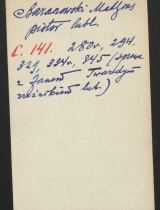 Baranowski Małgorz.
pistor lubl.
C. 141. 280v, 294,
329, 334v, 345 (sprawa
z Janem Twardym
rzeźnikiem lub.)